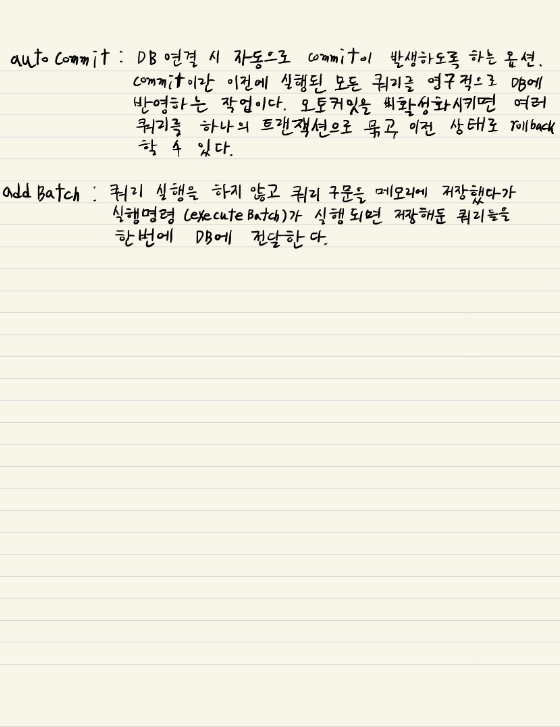 auto commit : DB 연결 시 자동으로 commit이 발생하도록 하는 옵션.
commit이란 이전에 실행된 모든 쿼리를 영구적으로 DB에
반영하는 작업이다. 오토커밋을 비활성화시키면 여러
쿼리를 하나의 트랜잭션으로 묶고 이전 상태로 rollback
할 수 있다.
add Batch : 쿼리 실행을 하지 않고 쿼리 구문을 메모리에 저장했다가
실행명령 (execute Batch)가 실행되면 저장해둔 쿼리들을
한번에 DB에 전달한다.